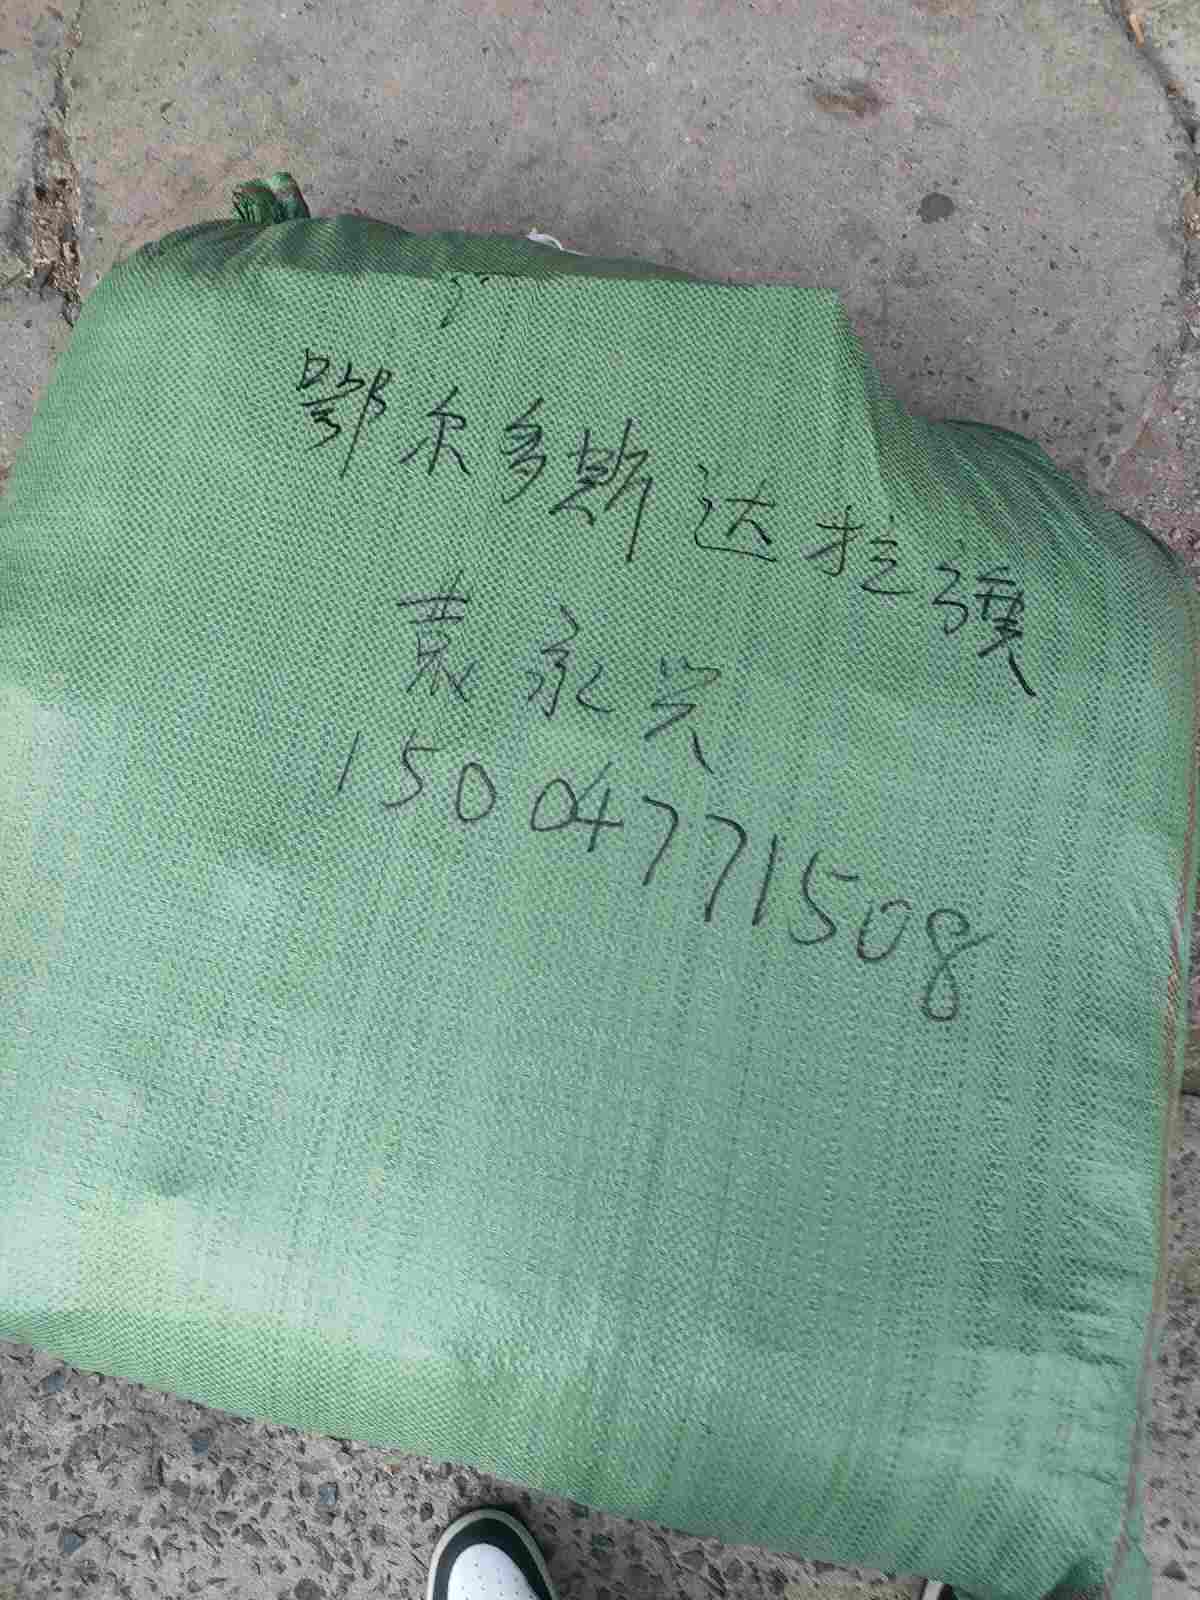 鄂尔多斯达拉旗
袁永兴
15004771508